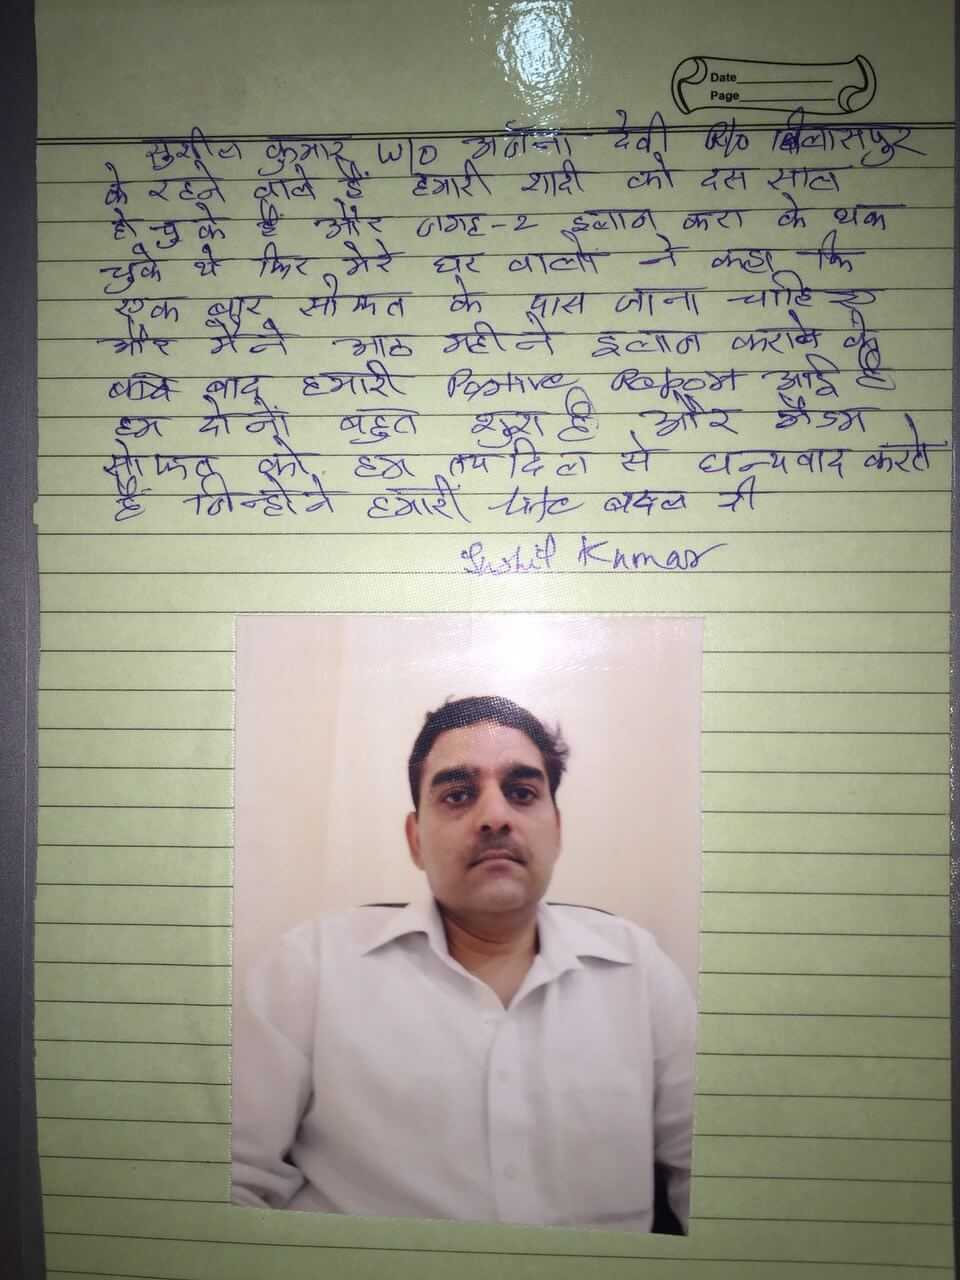 Date
Page
सुशील कुमार W/O अर्चना देवी R/o बिलासपुर
के रहने वाले हैं हमारी शादी को दस साल
हो चुके हैं और जगह-2 इलाज करा के थक
चुके थे फिर मेरे घर वालो ने कहा कि
एक बार सोफत के पास जाना चाहिए
और मैने आठ महीने इलाज कराने के
बाद हमारी Positive Report आई है
हम दोनों बहुत खुश है और मैडम
सोफत को हम तय दिल से धन्यवाद करते
है जिन्होने हमारी life बदल दी
Sushil Kumar